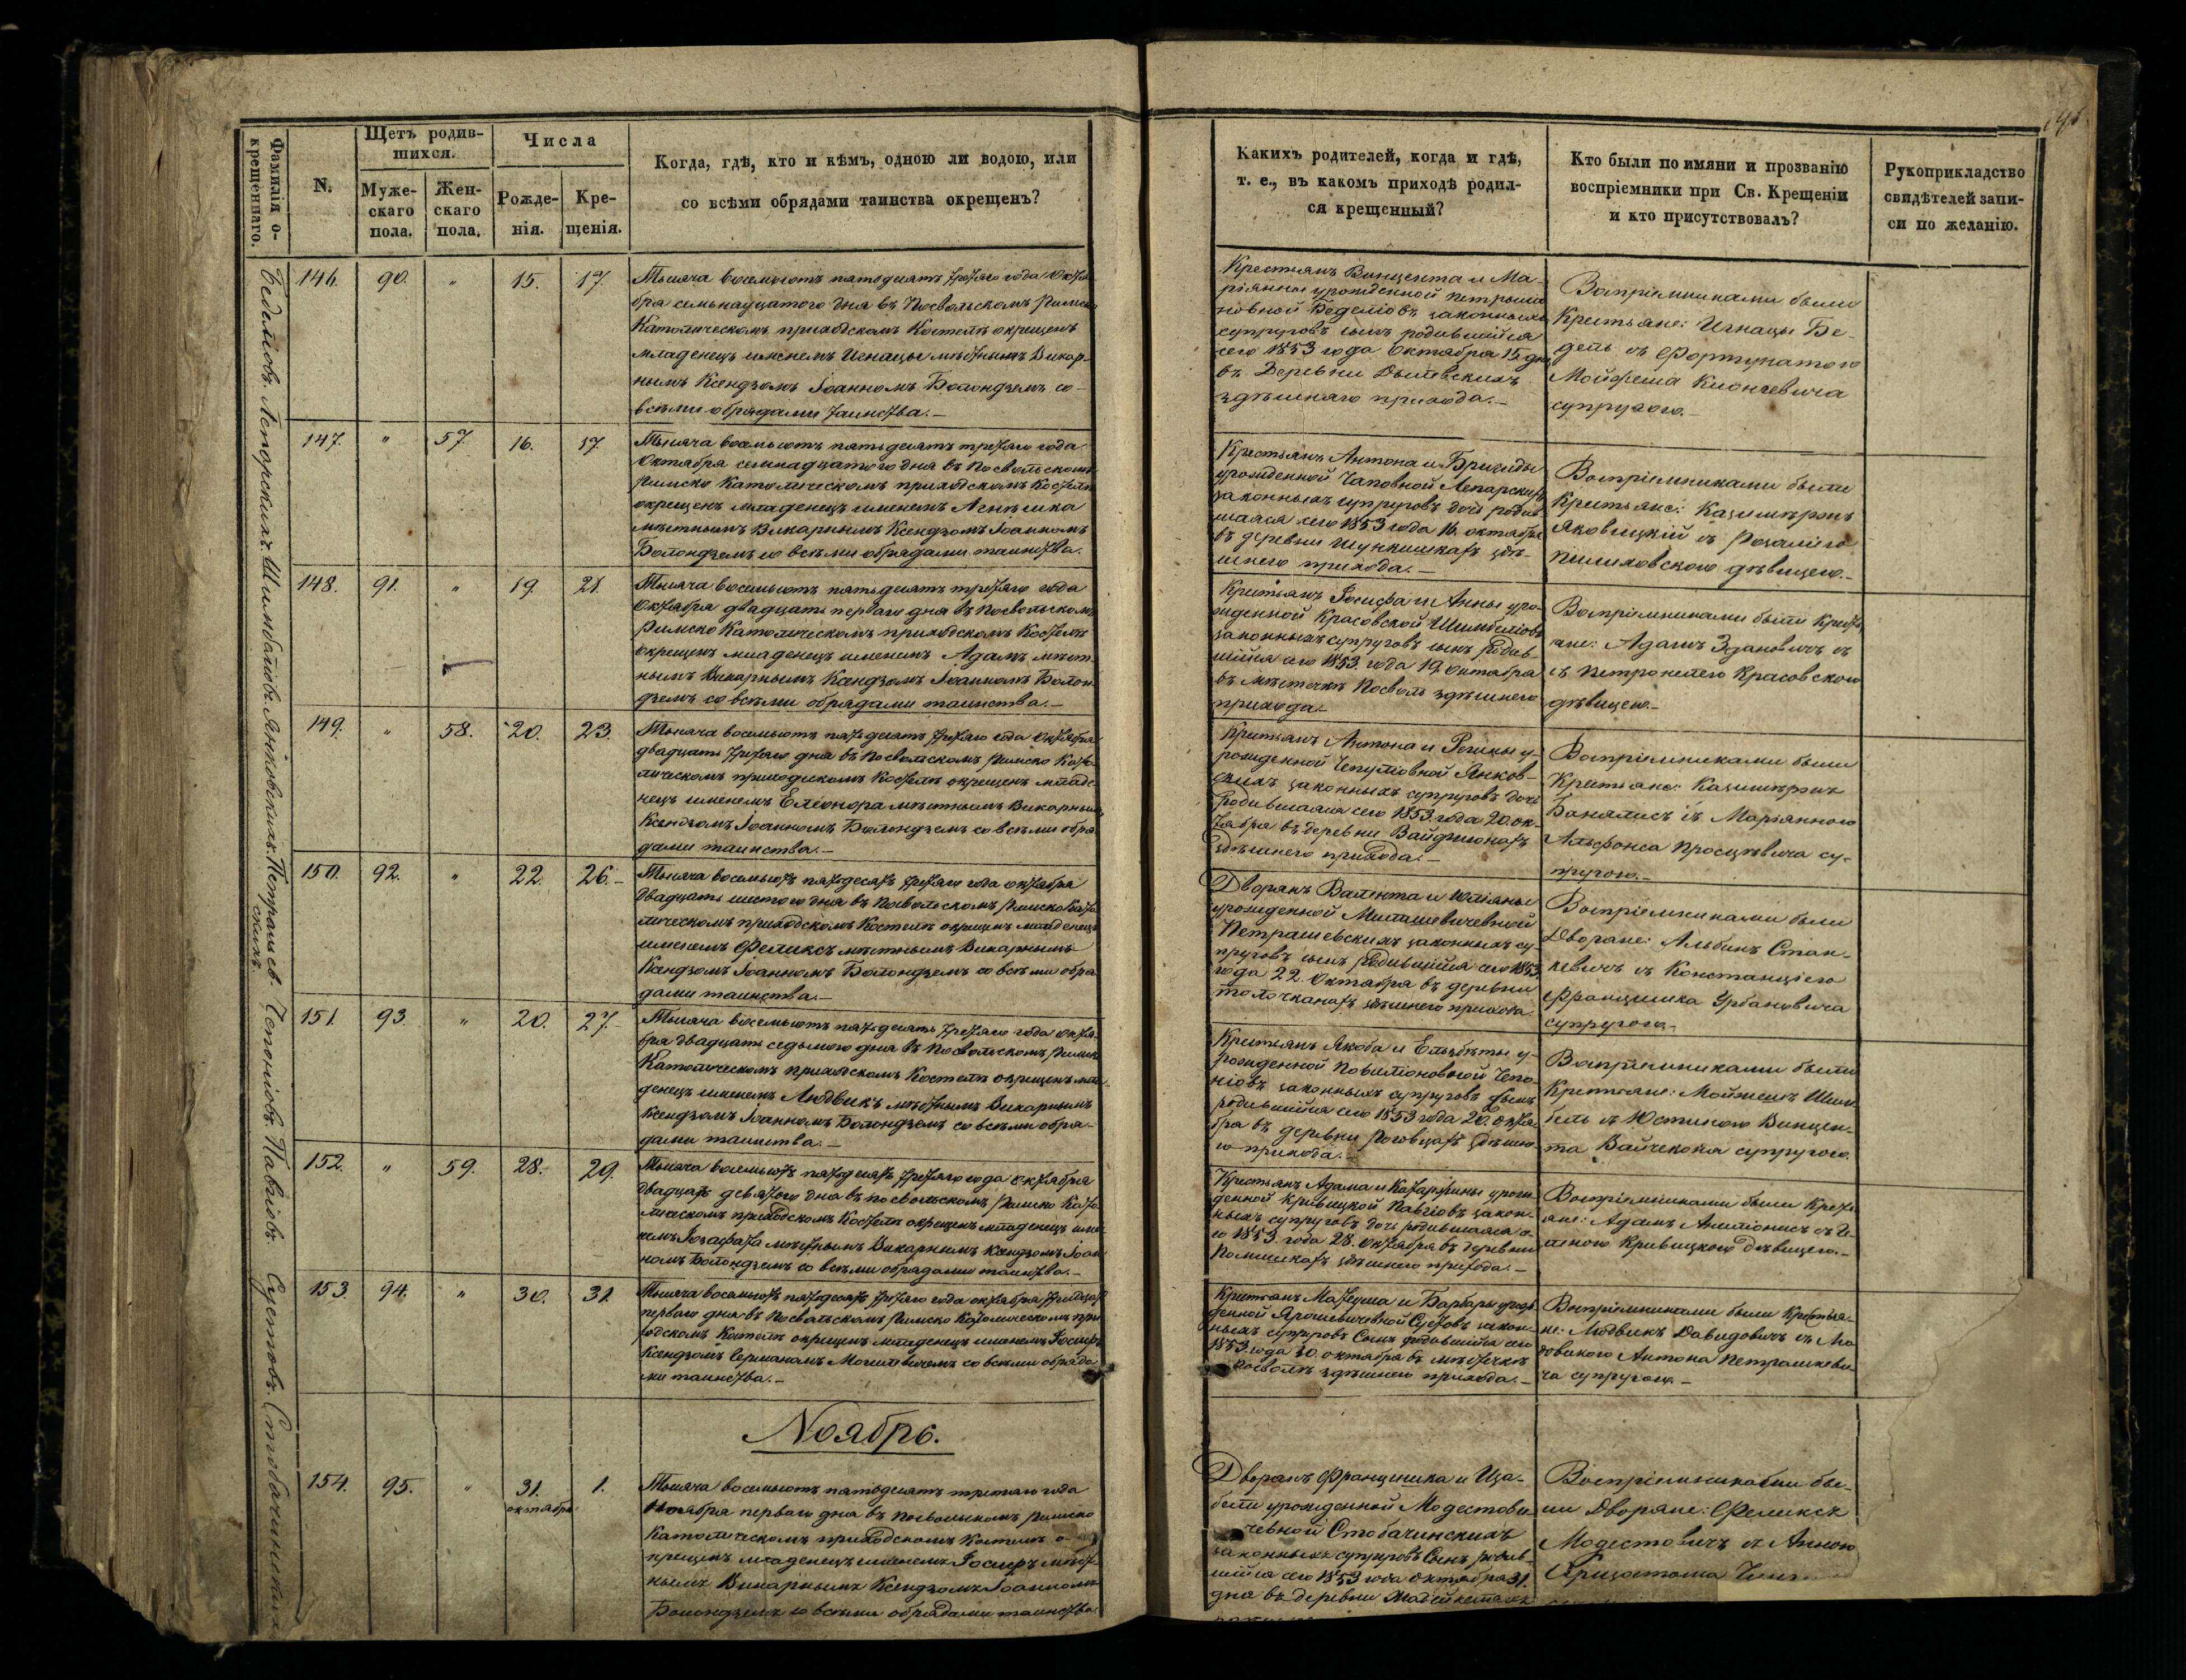 145.
Фамилія о-
крещеннаго.
N.
Щетъ родив-
шихся.
Муже-
скаго
пола.
Жен-
скаго
пола.
Числа
Рожде-
нія.
Кре-
щенія.
Когда, гдѣ, кто и кѣмъ, одною ли водою, или
со всѣми обрядами таинства окрещенъ?
Какихъ родителей, когда и гдѣ,
т. е., въ какомъ приходѣ родил-
ся крещенный?
Кто были по имяни и прозванію
воспріемники при Св. Крещеніи
и кто присутствовалъ?
Рукоприкладство
свидѣтелей запи-
си по желанію.
146. 90. " 15. 17.
Тысяча восемьсотъ пятдесятъ третяго года Октя-
бря семьнадцатого дня въ Посвольскомъ Римско
Католическомъ приходскомъ Костелѣ окрещенъ
младенецъ именемъ Игнацы мѣстнымъ Викар-
нымъ Ксендзомъ Іоанномъ Болондземъ со-
всѣми обрядами таинства.-
Крестьянъ Винцента и Ма-
ріянны урожденной
Беделіовъ законныхъ
супруговъ сынъ родившійся
сего 1853 года Октября 15 дня
въ Деревни
здѣшняго прихода.-
Воспріемниками были
Крестьяне: Игнацы Бе-
дель съ Фортунатою
Мойжеша Клончевича
супругою.-
147. " 57. 16. 17.
Тысяча восемьсотъ пятьдесятъ третяго года
Октября семнадцатого дня въ Посвольскомъ
Римско Католическомъ приходскомъ Костелѣ
окрещенъ младенецъ именемъ Агнѣшка
мѣстнымъ Викарнымъ Ксендзомъ Іоанномъ
Болондземъ со всѣми обрядами таинства.
Крестьянъ Антона и Бригиды
урожденной Чаповной Лепарскихъ
законныхъ супруговъ дочь родив-
шаяся сего 1853 года 16. октября
въ деревни Шункишкахъ здѣ-
шнего прихода.-
Воспріемниками были
Крестьяне: Казимѣръ
Яковицкій съ Розаліею
дѣвицею.-
148. 91. " 19. 21.
Тысяча восемьсотъ пятьдесятъ третяго года
Октября двадцать перваго дня въ Посвольскомъ
Римско Католическомъ приходскомъ Костелѣ
окрещенъ младенецъ именемъ Адамъ мѣст-
нымъ Викарнымъ Ксендзомъ Іоанномъ Болон-
дземъ со всѣми обрядами таинства.-
Крестьянъ Іосифа и Анны уро-
жденной Красовской Шимбеліовъ
законныхъ супруговъ сынъ родив-
шійся сего 1853. года 19 Октября
въ мѣстечкѣ Посволь здѣшнего
прихода.-
Воспріемниками были Крестья-
яне: Адамъ Здановичъ съ
Петронелею Красовскою
дѣвицею.-
149. " 58. 20. 23.
Тысяча восемьсотъ пятьдесятъ третяго года Октября
двадцать третяго дня въ Посвольскомъ Римско Като-
лическомъ приходскомъ Костелѣ окрещенъ младе-
нецъ именемъ Елеонора мѣстнымъ Викарнымъ
Ксендзомъ Іоанномъ Болондземъ со всѣми обря-
дами таинства.-
Крестьянъ Антона и Регины у-
рожденной Янков-
скихъ законныхъ супруговъ дочь
родившаяся сего 1853. года 20. ок-
тября въ деревни
здѣшнего прихода.-
Воспріемниками были
Крестьяне: Казимѣръ
съ Маріянною
Альфонса Просцевича су-
пругою.-
150. 92. " 22. 26.-
Тысяча восемьсотъ пятьдесятъ третяго года октября
двадцать шестого дня въ Посвольскомъ Римско Като-
лическомъ приходскомъ Костелѣ окрещенъ младенецъ
именемъ Феликсъ мѣстнымъ Викарнымъ
Ксендзомъ Іоанномъ Болондземъ со всѣми обря-
дами таинства.-
Дворянъ Валента и Юліяны
урожденной Милашевичевной
Петрашевскихъ законныхъ су-
пруговъ сынъ родившійся сего 1853.
года 22. Октября въ деревни
здѣшнего прихода.
Воспріемниками были
Дворяне: Альбинъ Стан-
кевичъ съ Констанціею
Францишка Урбановича
супругою.-
151. 93. " 20. 27.-
Тысяча восемьсотъ пятьдесятъ третяго года октя-
бря двадцать седьмого дня въ Посвольскомъ Римско
Католическомъ приходскомъ Костелѣ окрещенъ мла-
денецъ именемъ Людвикъ мѣстнымъ Викарнымъ
Ксендзомъ Іоанномъ Болондземъ со всѣми обря-
дами таинства.-
Крестьянъ Якоба и Ельжбѣты у-
рожденной Чепо-
ніовъ законныхъ супруговъ сынъ
родившійся сего 1853 года 20. октя-
бря въ деревни здѣшне-
го прихода.-
Воспріемниками были
Крестьяне: Мойжешъ Шим-
бель съ Юстиною Винцен-
та супругою.
152. " 59. 28. 29.
Тысяча восемьсотъ пятьдесятъ третяго года октября
двадцать девятого дня въ Посвольскомъ Римско Като-
лическомъ приходскомъ Костелѣ окрещенъ младенецъ име-
немъ Іозафата мѣстнымъ Викарнымъ Ксендзомъ Іоан-
номъ Болондземъ со всѣми обрядами таинства.-
Крестьянъ Адама и Катаржины урож-
денной Кривицкой Павліовъ закон-
ныхъ супруговъ дочь родившаяся се-
го 1853. года 28. Октября въ деревни
здѣшнего прихода.-
Воспріемниками были Кресть-
яне: Адамъ
Кривицкою дѣвицею.-
153. 94. " 30. 31.
Тысяча восемьсотъ пятьдесятъ третяго года октября тридцать
перваго дня въ Посвольскомъ Римско Католическомъ при-
ходскомъ Костелѣ окрещенъ младенецъ именемъ Іосифъ
Ксендзомъ со всѣми обряда-
ми таинства.-
Крестьянъ Матеуша и Барбары урож-
денной Ярошевичевной Суетовъ закон-
ныхъ супруговъ Сынъ родившійся сего
1853. года 30. октября въ мѣстечкѣ
Посволѣ здѣшнего прихода.-
Воспріемниками были Крестья-
не: Людвикъ Давидовичъ съ Лю-
довикою Антона Петрашкеви-
ча супругою.-
Ноябрь.
154. 95. " 31. 1.
октября
Тысяча восемьсотъ пятьдесятъ третяго года
Ноября перваго дня въ Посвольскомъ Римско
Католическомъ приходскомъ Костелѣ о-
крещенъ младенецъ именемъ Іосифъ мѣст-
нымъ Викарнымъ Ксендзомъ Іоанномъ
Болондземъ со всѣми обрядами таинства.
Дворянъ Францишка и Иза-
бели урожденной Модестови-
чевной Стобачинскихъ
законныхъ супруговъ Сынъ родив-
шійся сего 1853 года октября 31.
дня въ деревни
Воспріемниками бы-
ли Дворяне: Феликсъ
Модестовичъ съ Анною
Хризостома
Беделіовъ. Лепорскихъ. Шимбеліовъ. Янковскихъ. Петрашев-
скихъ. Чепоніовъ. Павліовъ. Суетовъ. Стобачинскихъ